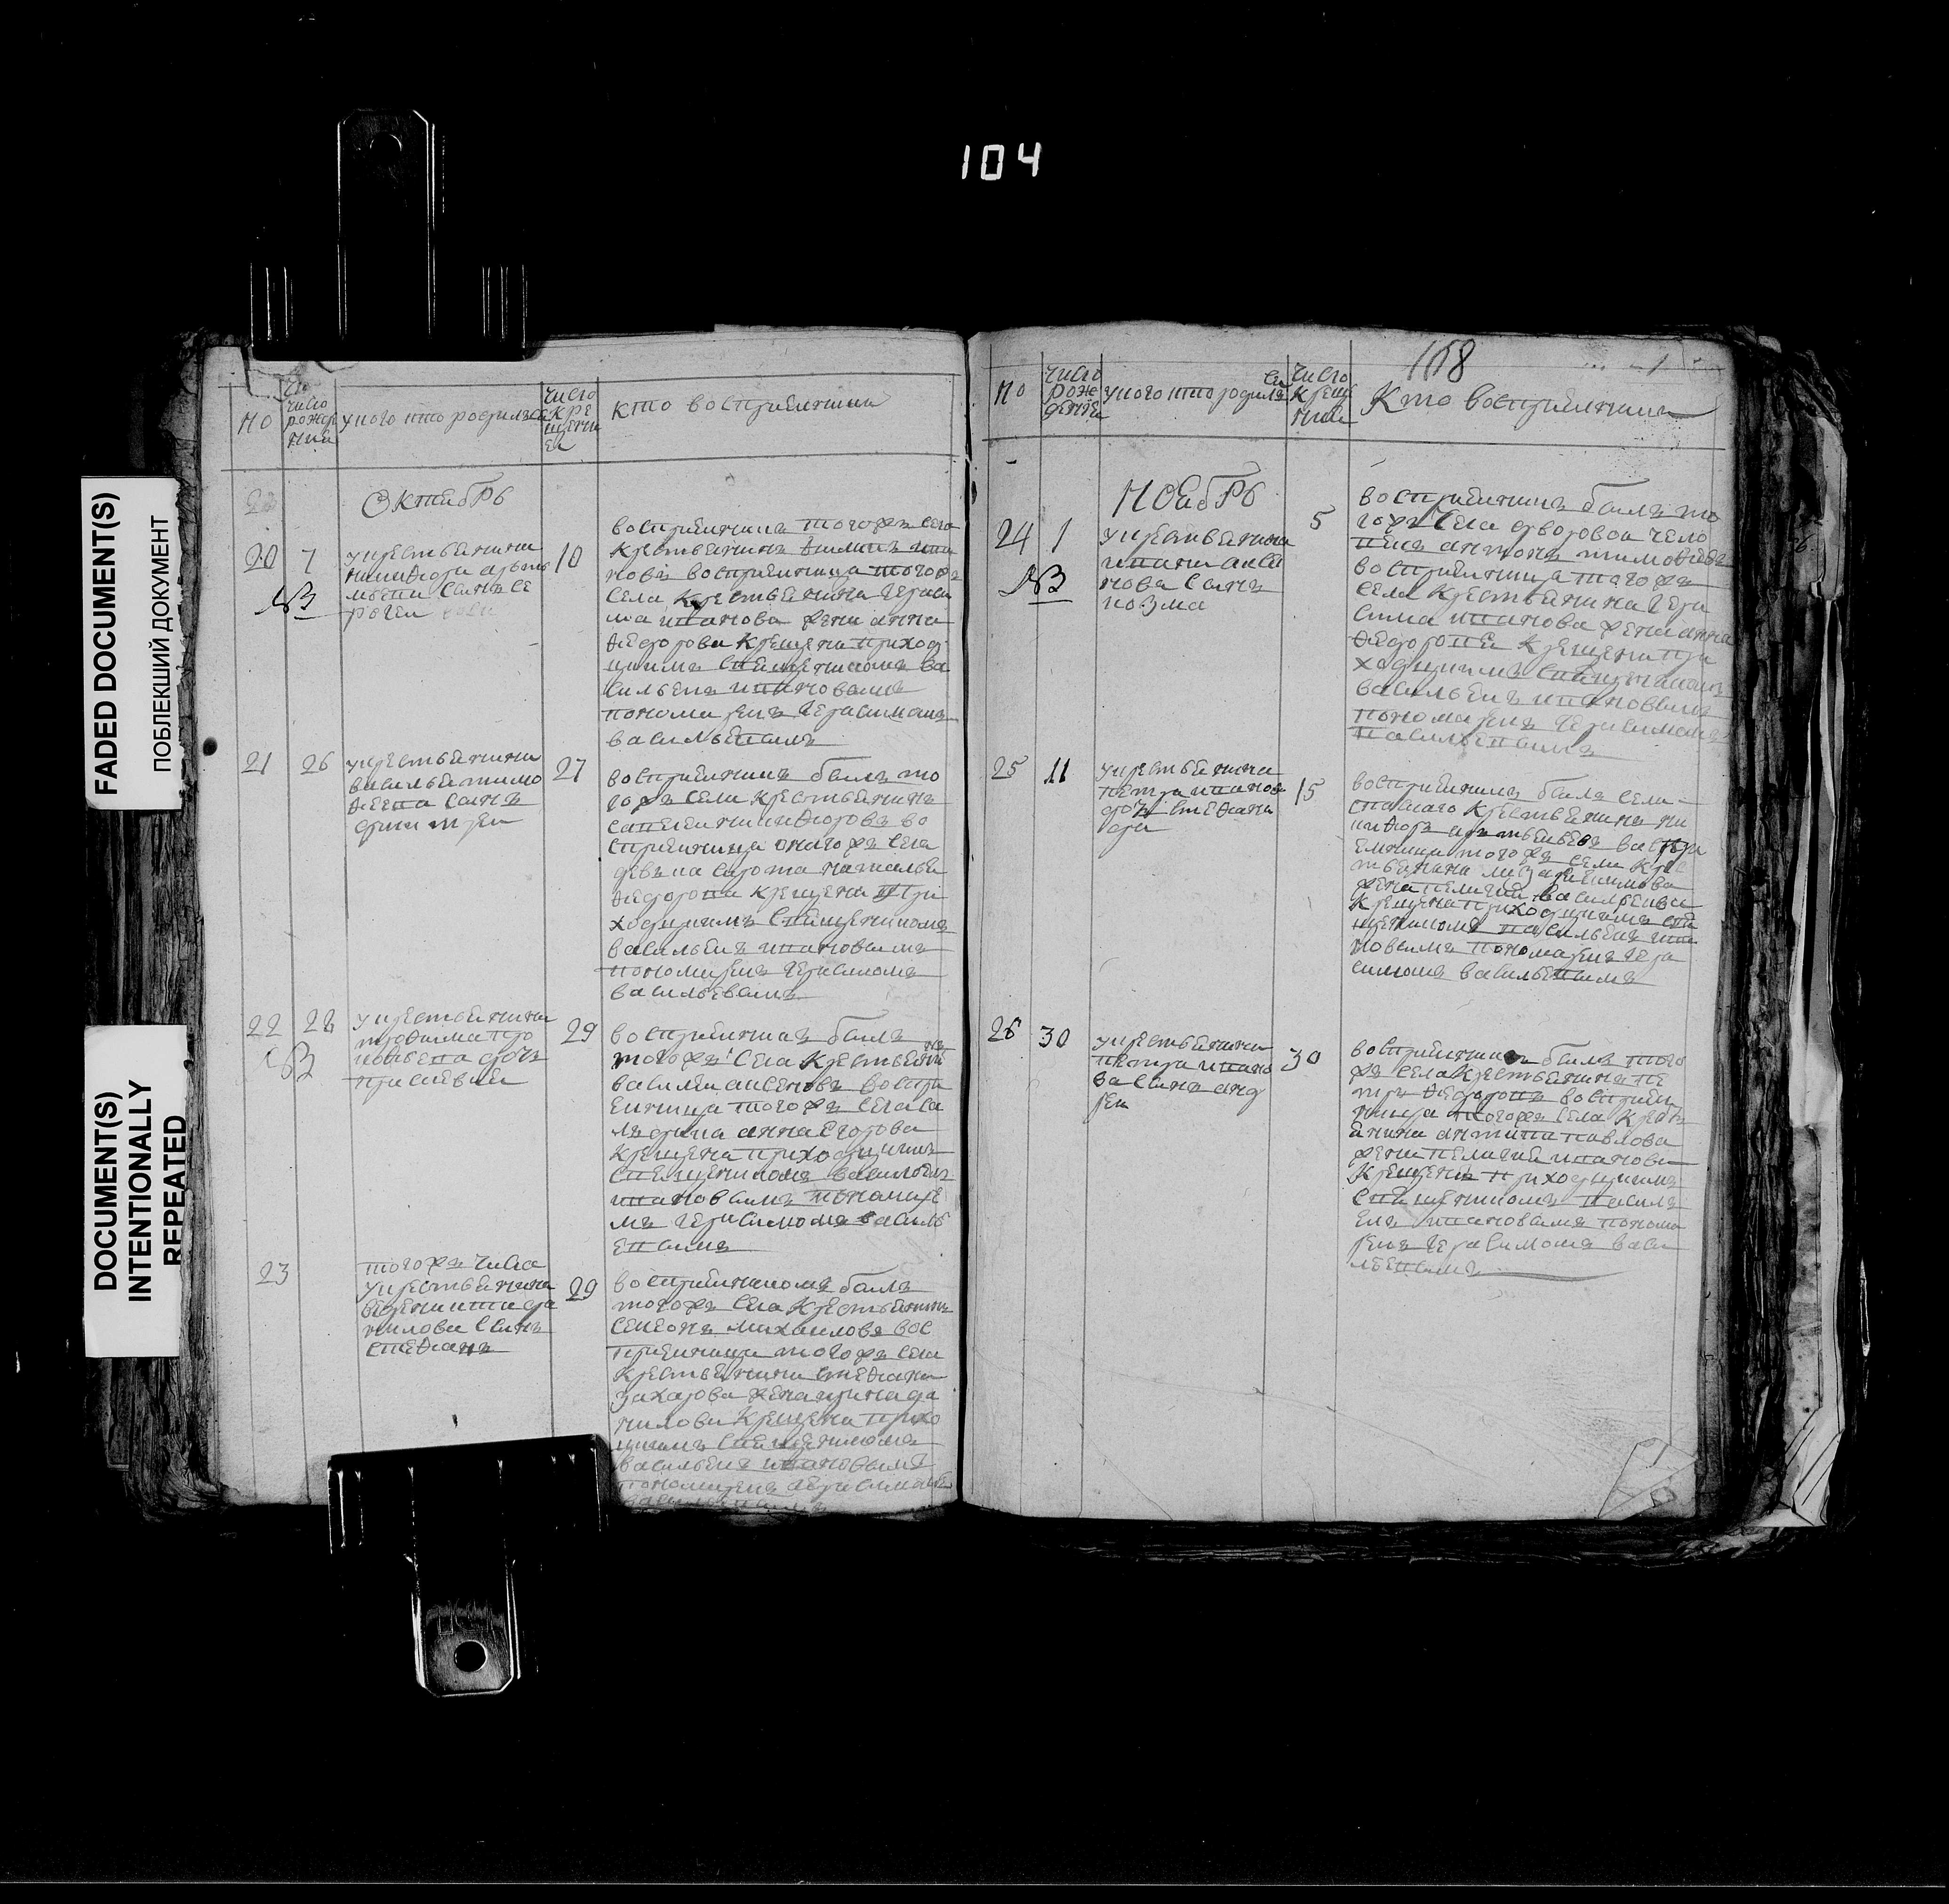 104
FADED DOCUMENT(S)
ПОБЛЕКШИЙ ДОКУМЕНТ
DOCUMENT(S)
INTENTIONALLY
REPEATED
но
число
рожде
ния
у кого кто родился
число
кре
щени
я
кто восприемники
октябрь
20
7
у крестьянина
никифора
сынъ се
ргеи
10
восприемникъ тогожъ села
крестьянинъ филипъ ива
новъ восприемница тогожъ
села крестьянина гераси
ма иванова жена анна
федорова крещена приход
цкимъ священникомъ ва
сильемъ ивановымъ
пономаремъ герасимомъ
васильевымъ
21
26
у крестьянина
василья тимо
феева сынъ
дмитреи
27
восприемникъ былъ то
гожъ села крестьянинъ
савелеи никифоровъ во
сприемница оногожъ села
девка сирота наталья
федорова крещена при
ходцкимъ священникомъ
васильемъ ивановымъ
пономаремъ герасимомъ
васильевымъ
22
у крестьянина
трофима про
кофьева дочь
29
восприемникъ былъ
тогожъ села крестьянинъ
василеи аксеновъ воспри
емница тогожъ села
анна
крещена приходцкимъ
священникомъ васильемъ
ивановымъ пономаре
мъ герасимомъ василь
евымъ
23
тогожъ числа
у крестьянина
да
нилова сынъ
стефанъ
29
восприемникомъ былъ
тогожъ села крестьянинъ
семенъ михаиловъ вос
приемница тогожъ села
крестьянина стефана
захарова жена ирина да
нилова крещена прихо
цкимъ священникомъ
васильемъ ивановымъ
пономаремъ герасимомъ
васильевымъ
168
но
число
рож
дения
у кого кто родил
ся
число
крещ
ния
Кто восприемники
ноябрь
24
1
у крестьянина
ивана аксе
нова сынъ
козма
5
восприемникъ былъ то
гожъ села дворовои чело
векъ антонъ тимофеевъ
восприемница тогожъ
села крестьянина гера
сима иванова жена анна
федорова крещена при
ходцкимъ священникомъ
васильемъ ивановымъ
пономаремъ герасимомъ
васильевымъ
25
11
у крестьянина
петра иванова
дочь стефани
да
15
восприемникъ былъ села
спаского крестьянинъ ни
кифоръ воспри
емница тогожъ села крес
тьянина
жена пелагия васильева
крещена приходцкимъ свя
щенникомъ васильемъ ива
новымъ пономаремъ гера
симомъ васильевымъ
26
30
у крестьянина
петра ивано
ва сынъ анд
реи
30
восприемникъ былъ того
жъ села крестьянинъ пе
тръ федоровъ восприем
ница тогожъ села крестъ
янина антипа павлова
жена пелагия иванова
крещенъ приходцкимъ
священникомъ василь
емъ ивановымъ понома
ремъ герасимомъ васи
льевымъ